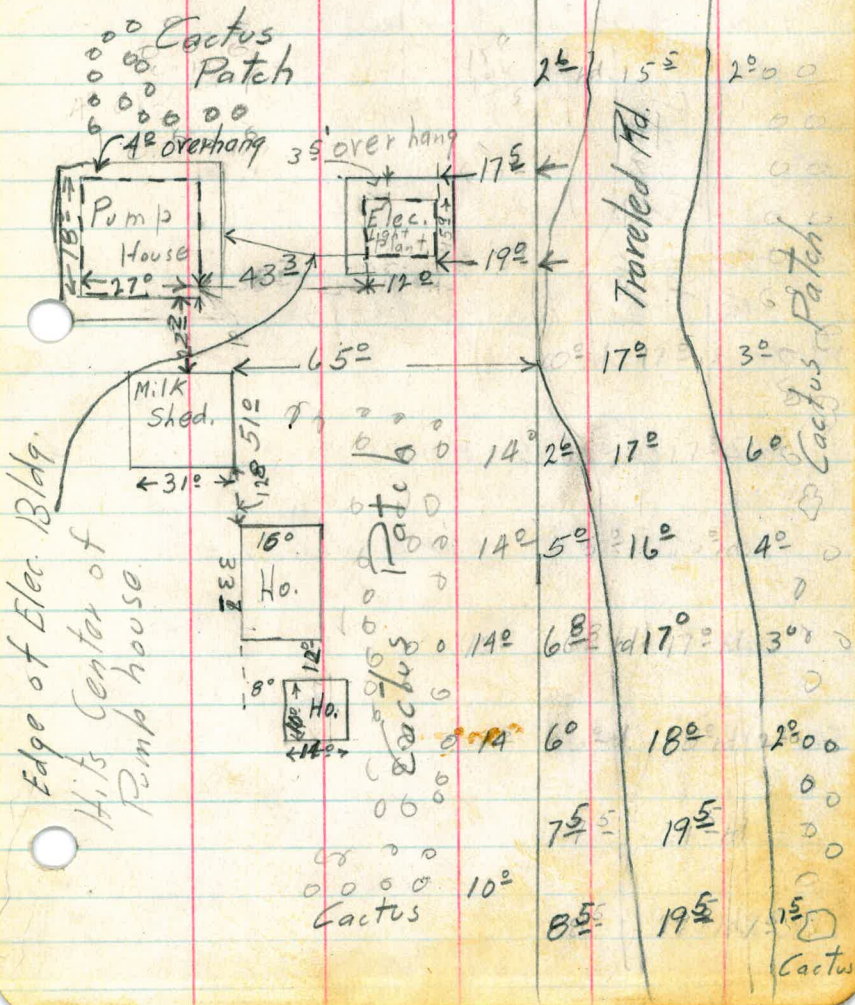 Cactus
Patch
4⁰ overhang
3⁵' overhang
Pump
House
18⁰
27⁰
Elec.
Light
Plant
15⁹
12⁰
43³
17⁵
19⁰
22
Milk
Shed.
65⁰
51⁰
31⁰
12⁸
16⁰
Ho.
33⁸
12⁰
8⁰
Ho.
14⁰
Cactus Patch
Cactus
Edge of Elec. Bldg.
Hits Center of
Pump house
Traveled Rd.
Cactus Patch
2⁶ 15⁵ 2⁰
17⁰ 3⁰
14⁰ 2⁶ 17⁰ 6⁰
14⁰ 5⁰ 16⁰ 4⁰
14⁰ 6⁸ 17⁰ 3⁰
14 6⁰ 18⁰ 2⁰
7⁵ 19⁵
10⁰
8⁵ 19⁵ 1⁵
Cactus